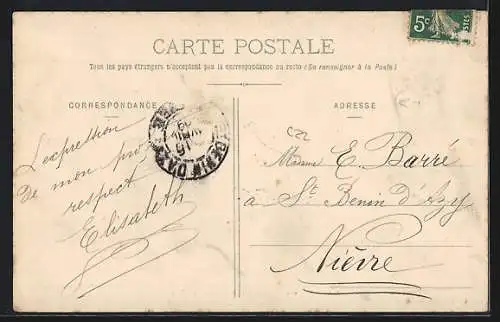 5c
POSTES
CARTE POSTALE
Tous les pays étrangers n'acceptent pas la correspondance au recto (Se renseigner à la Poste)
CORRESPONDANCE
L'expression
de mon
respect
Elisabeth
ADRESSE
C22
Madame E. Barré
à St Benin d'Azy
Nièvre